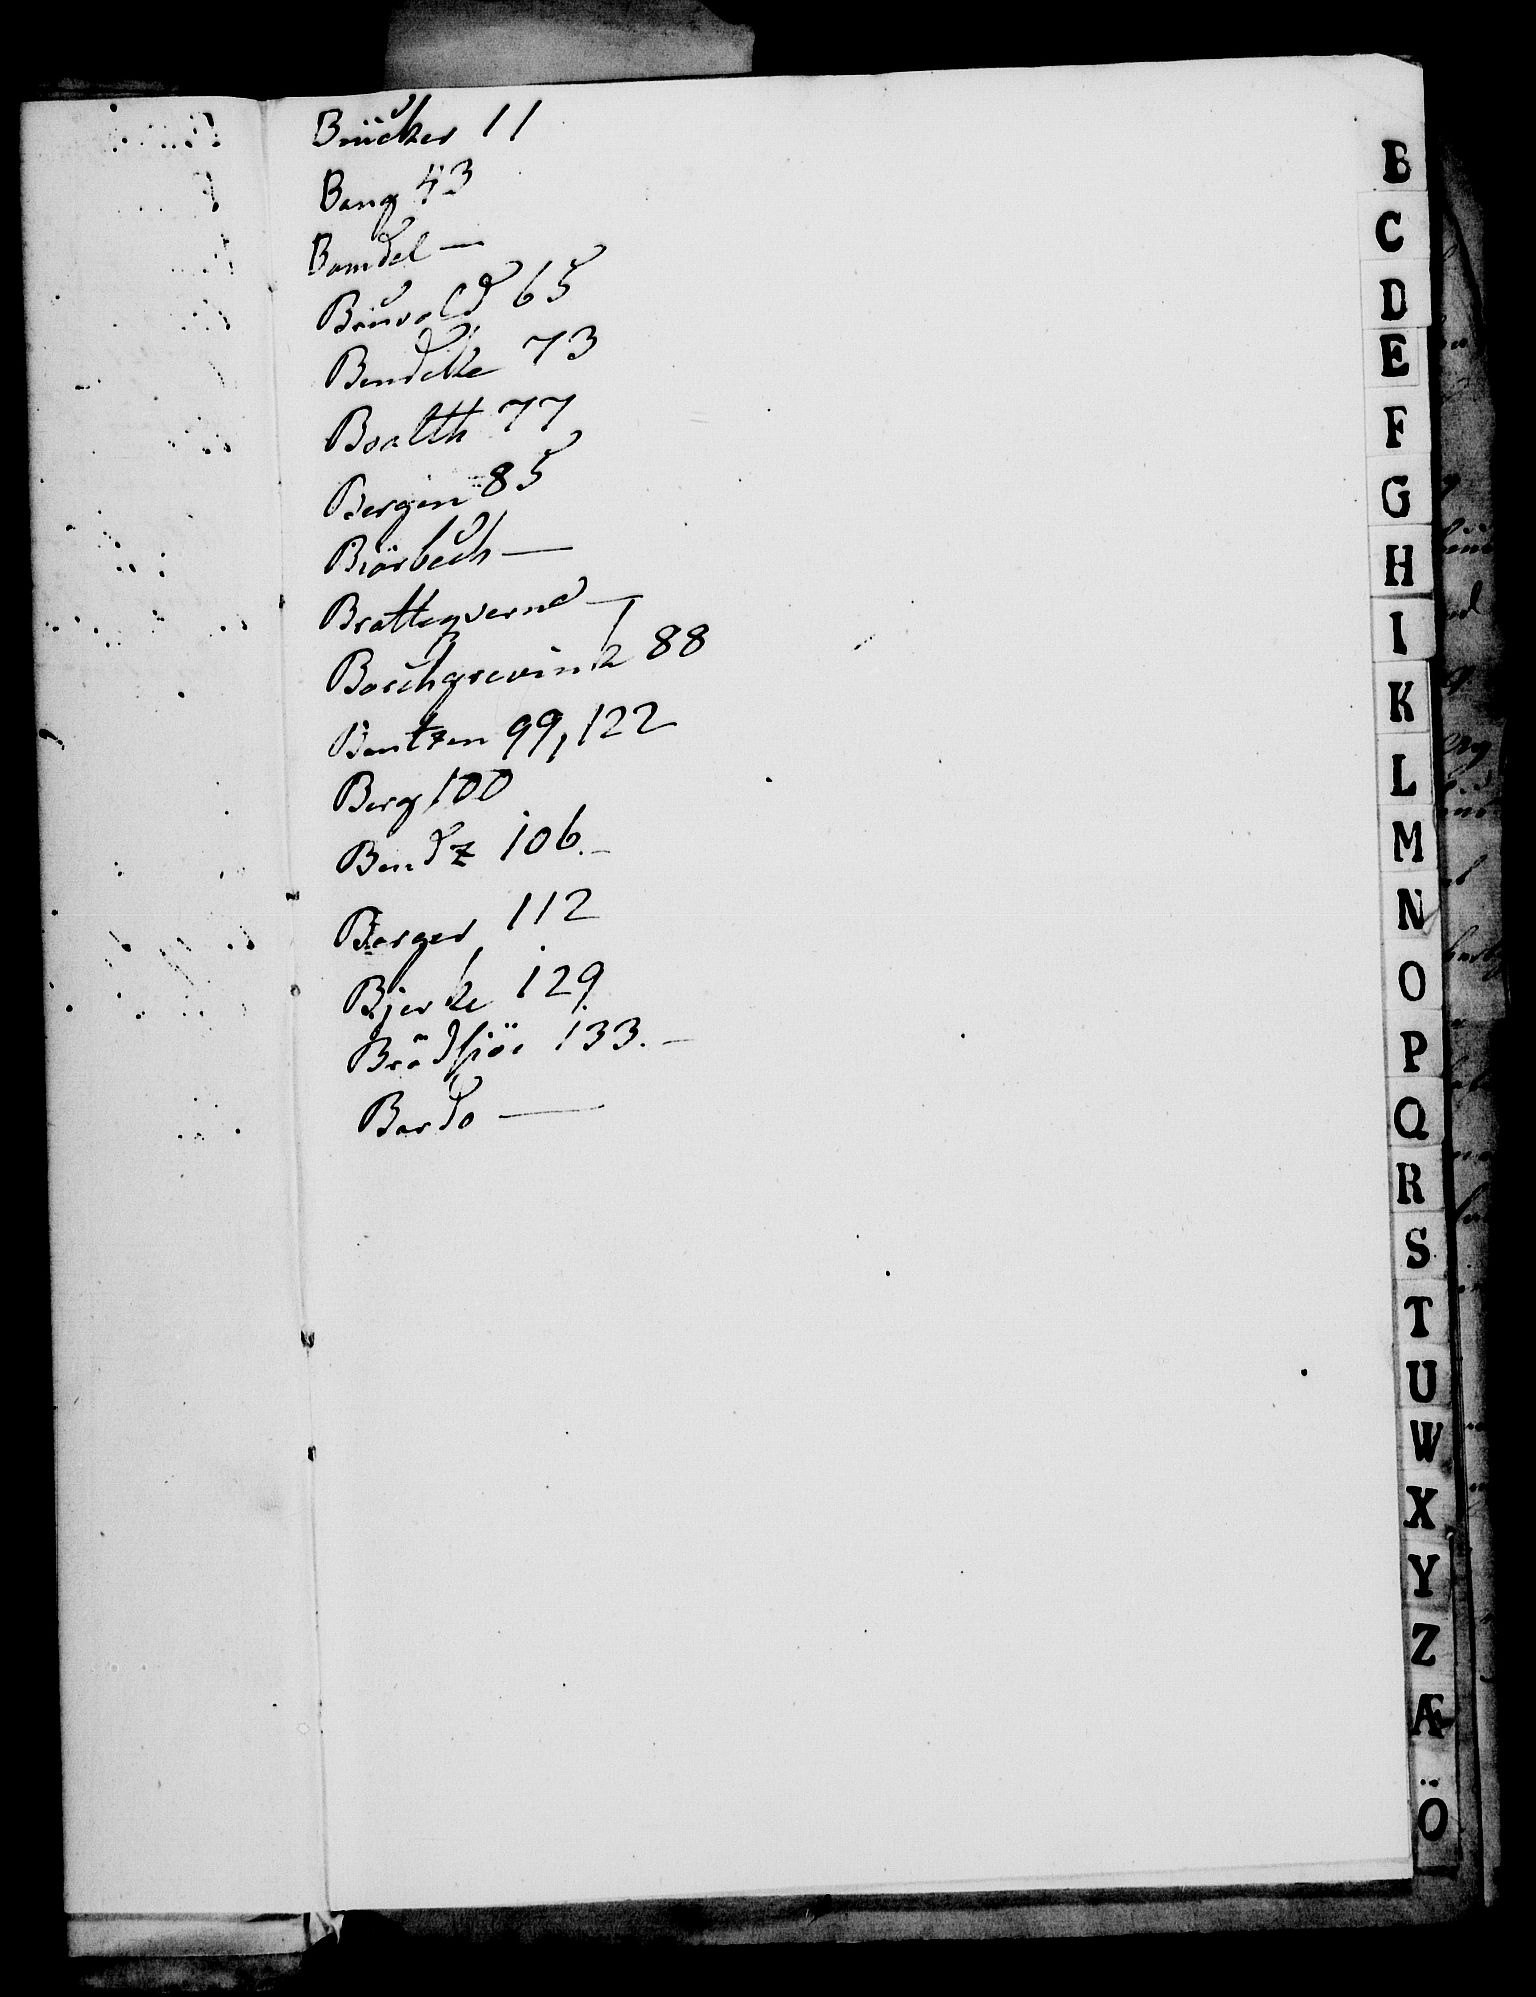 Brücker 11
Bang 43
Bamdel —
Bruvold 65
Bendeke 73
Boalth 77
Bergen 85
Biörbech —
Brattegverne —
Borchgrevink 88
Bentzen 99, 122
Berg 100
Bendz 106. —
Borger 112
Bjerke 129
Brödsjöe 133. —
Bardo —
B
C
D
E
F
G
H
I
K
L
M
N
O
P
Q
R
S
T
U
W
X
Y
Z
Æ
Ö